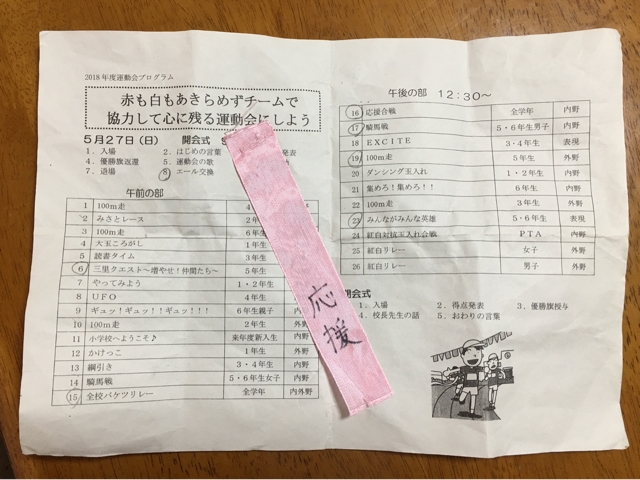 2018年度運動会プログラム
赤も白もあきらめずチームで
協力して心に残る運動会にしよう
5月27日（日） 開会式
1．入場 2．はじめの言葉 発表
4．優勝旗返還 5．運動会の歌
7．退場 8．エール交換
午前の部
1 100m走
2 みさとレース 2年
3 100m走 6年生
4 大玉ころがし 1年生
5 読書タイム 3年生
6 三里クエスト～増やせ！仲間たち～ 5年生
7 やってみよう 1・2年生
8 UFO 4年生
9 ギュッ！ギュッ！！ギュッ！！！ 6年生親子 内野
10 100m走 2年生 外野
11 小学校へようこそ♪ 来年度新入生 内野
12 かけっこ 1年生 外野
13 綱引き 3・4年生 内野
14 騎馬戦 5・6年生女子 内野
15 全校バケツリレー 全学年 内外野
午後の部 12：30～
16 応援合戦 全学年 内野
17 騎馬戦 5・6年生男子 内野
18 EXCITE 3・4年生 表現
19 100m走 5年生 外野
20 ダンシング玉入れ 1・2年生 内野
21 集めろ！集めろ！！ 6年生 内野
22 100m走 3年生 外野
23 みんながみんな英雄 5・6年生 表現
24 紅白対抗玉入れ合戦 PTA 内野
25 紅白リレー 女子 外野
26 紅白リレー 男子 外野
閉会式
1．入場 2．得点発表 3．優勝旗授与
4．校長先生の話 5．おわりの言葉
応援